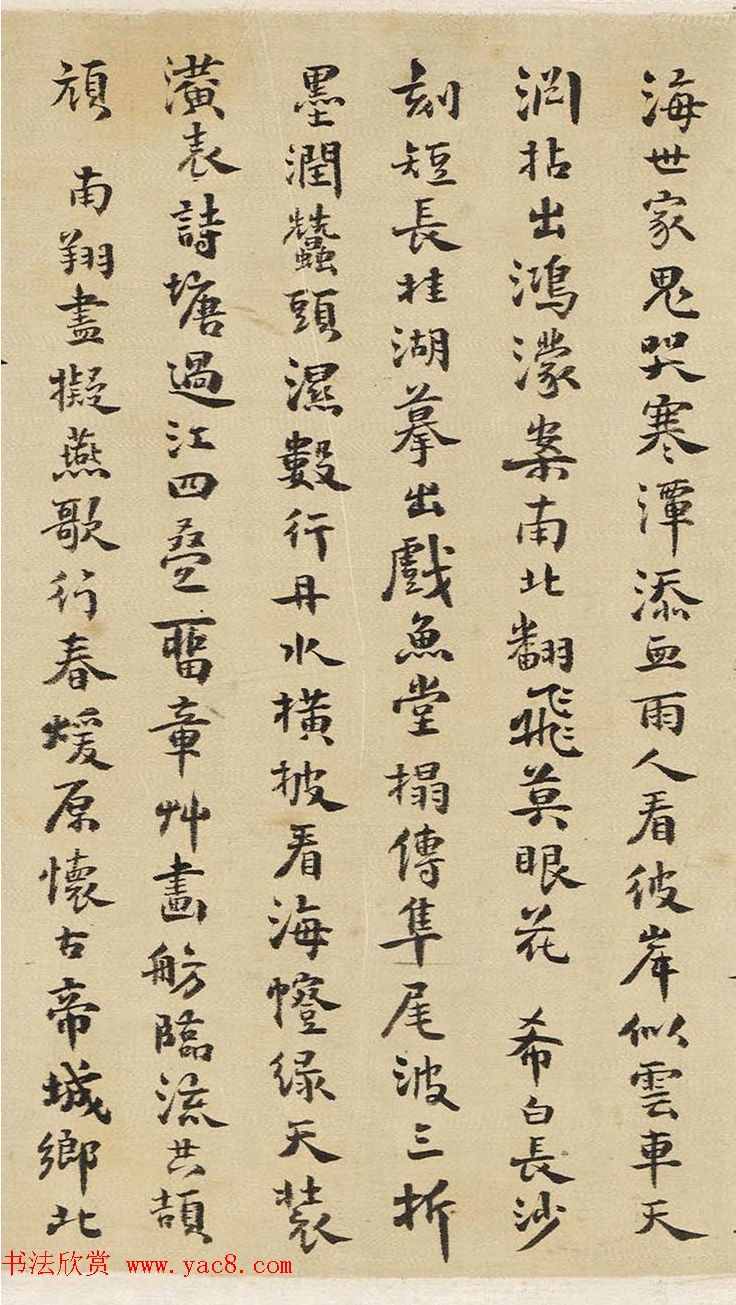 海世家鬼哭寒潭添血雨人看彼岸似雲車天
淵拈出鴻濛案南北翻飛莫眼花 希白長沙
刻短長桂湖摹出戲魚堂搨傳隼尾波三折
墨潤蠶頭濕數行丹水橫披看海幢綠天裝
潢表詩塘過江四疊舊章艸畫舫臨流共頡
頏 南翔盡擬燕歌行春煖原懷古帝城鄉北
书法欣赏 www.yac8.com